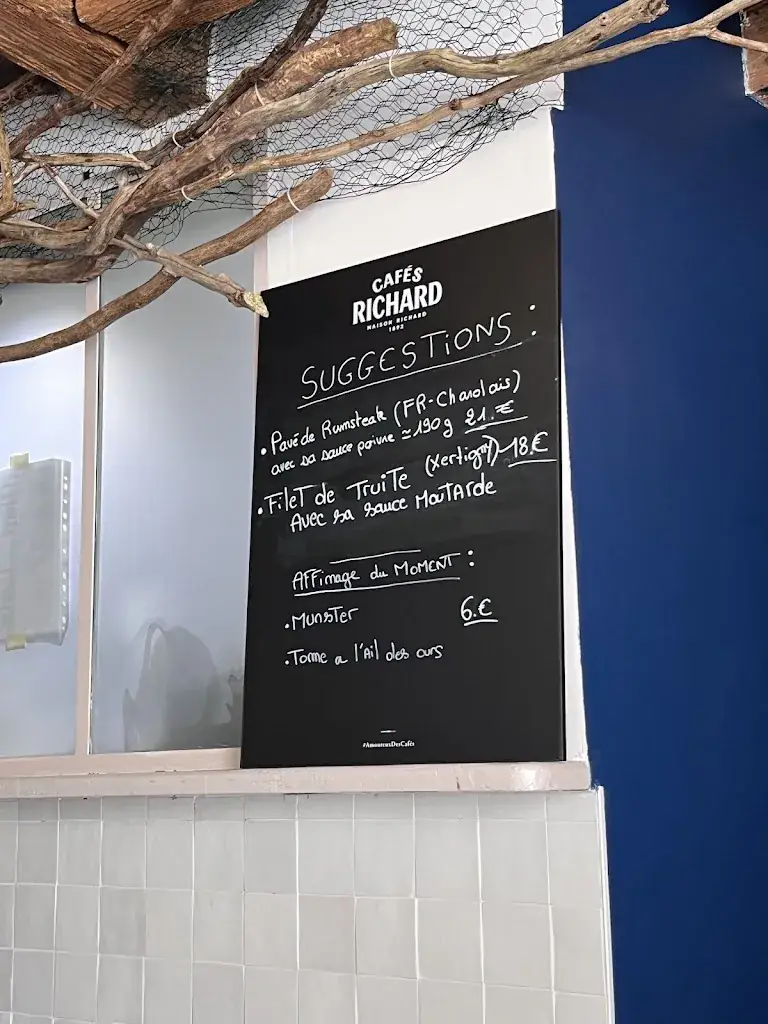 CAFÉS
RICHARD
MAISON RICHARD
1892
SUGGESTIONS :
• Pavé de Rumsteak (FR-Charolais)
avec sa sauce poivre ≃190g 21.€
• Filet de Truite (Xertigny) 18.€
Avec sa sauce Moutarde
Affinage du MOMENT :
• Munster 6.€
• Tomme a l'Ail des ours
#AmoureuxDesCafés